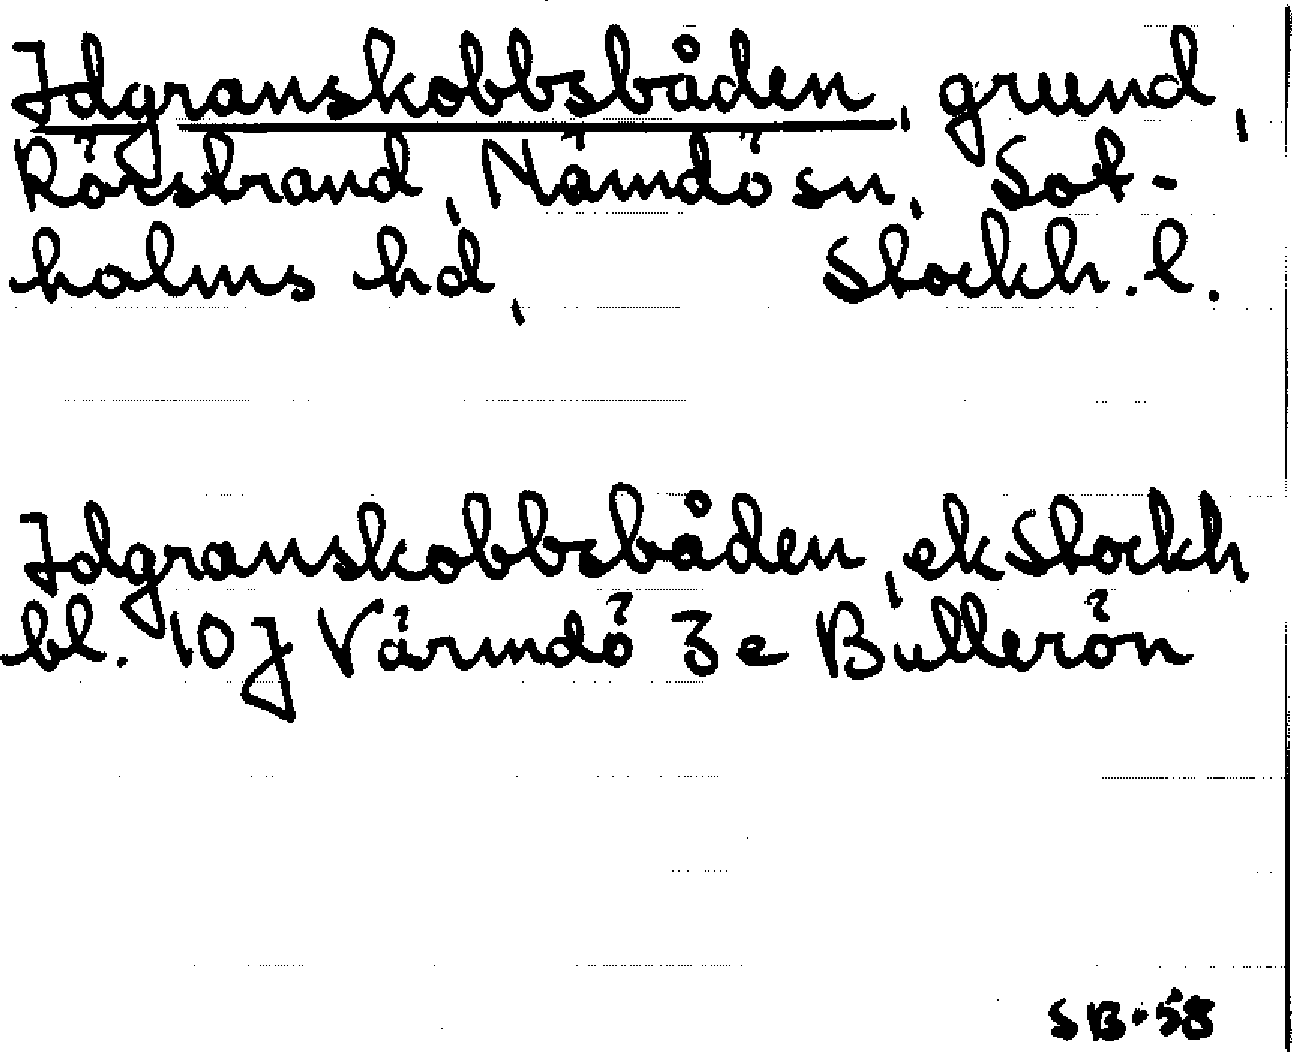 Idgranskobbsbåden, grund,
Rörstrand, Nämdö sn, Sot-
holms hd, Stockh. l.
Idgranskobbsbåden, ek Stockh
bl. 10J Värmdö 3e Bullerön
SB·58